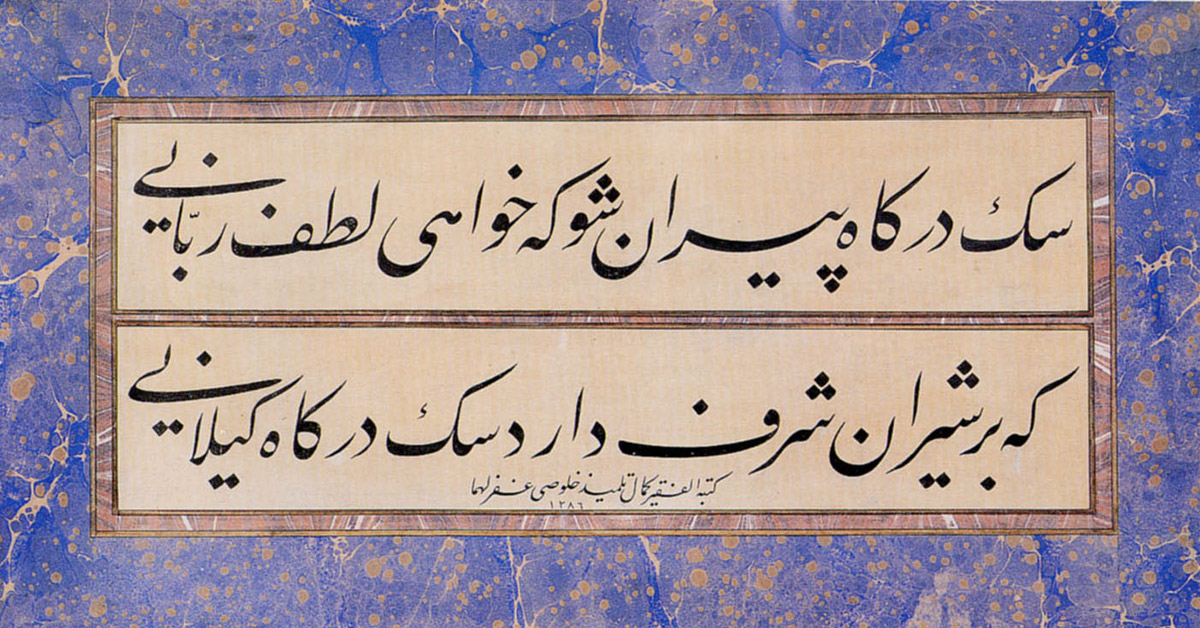 سک درکاه پیران شو که خواهی لطف ربّانی
که بر شیران شرف دارد سک درکاه کیلانی
کتبه الفقیر کمال تلمیذ خلوصی غفر لهما
١٣٨٦